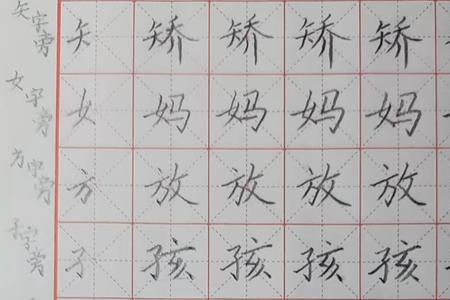 矢字旁 矢 矫 矫 矫 矫
女字旁 女 妈 妈 妈 妈
方字旁 方 放 放 放 放
子字旁 子 孩 孩 孩 孩